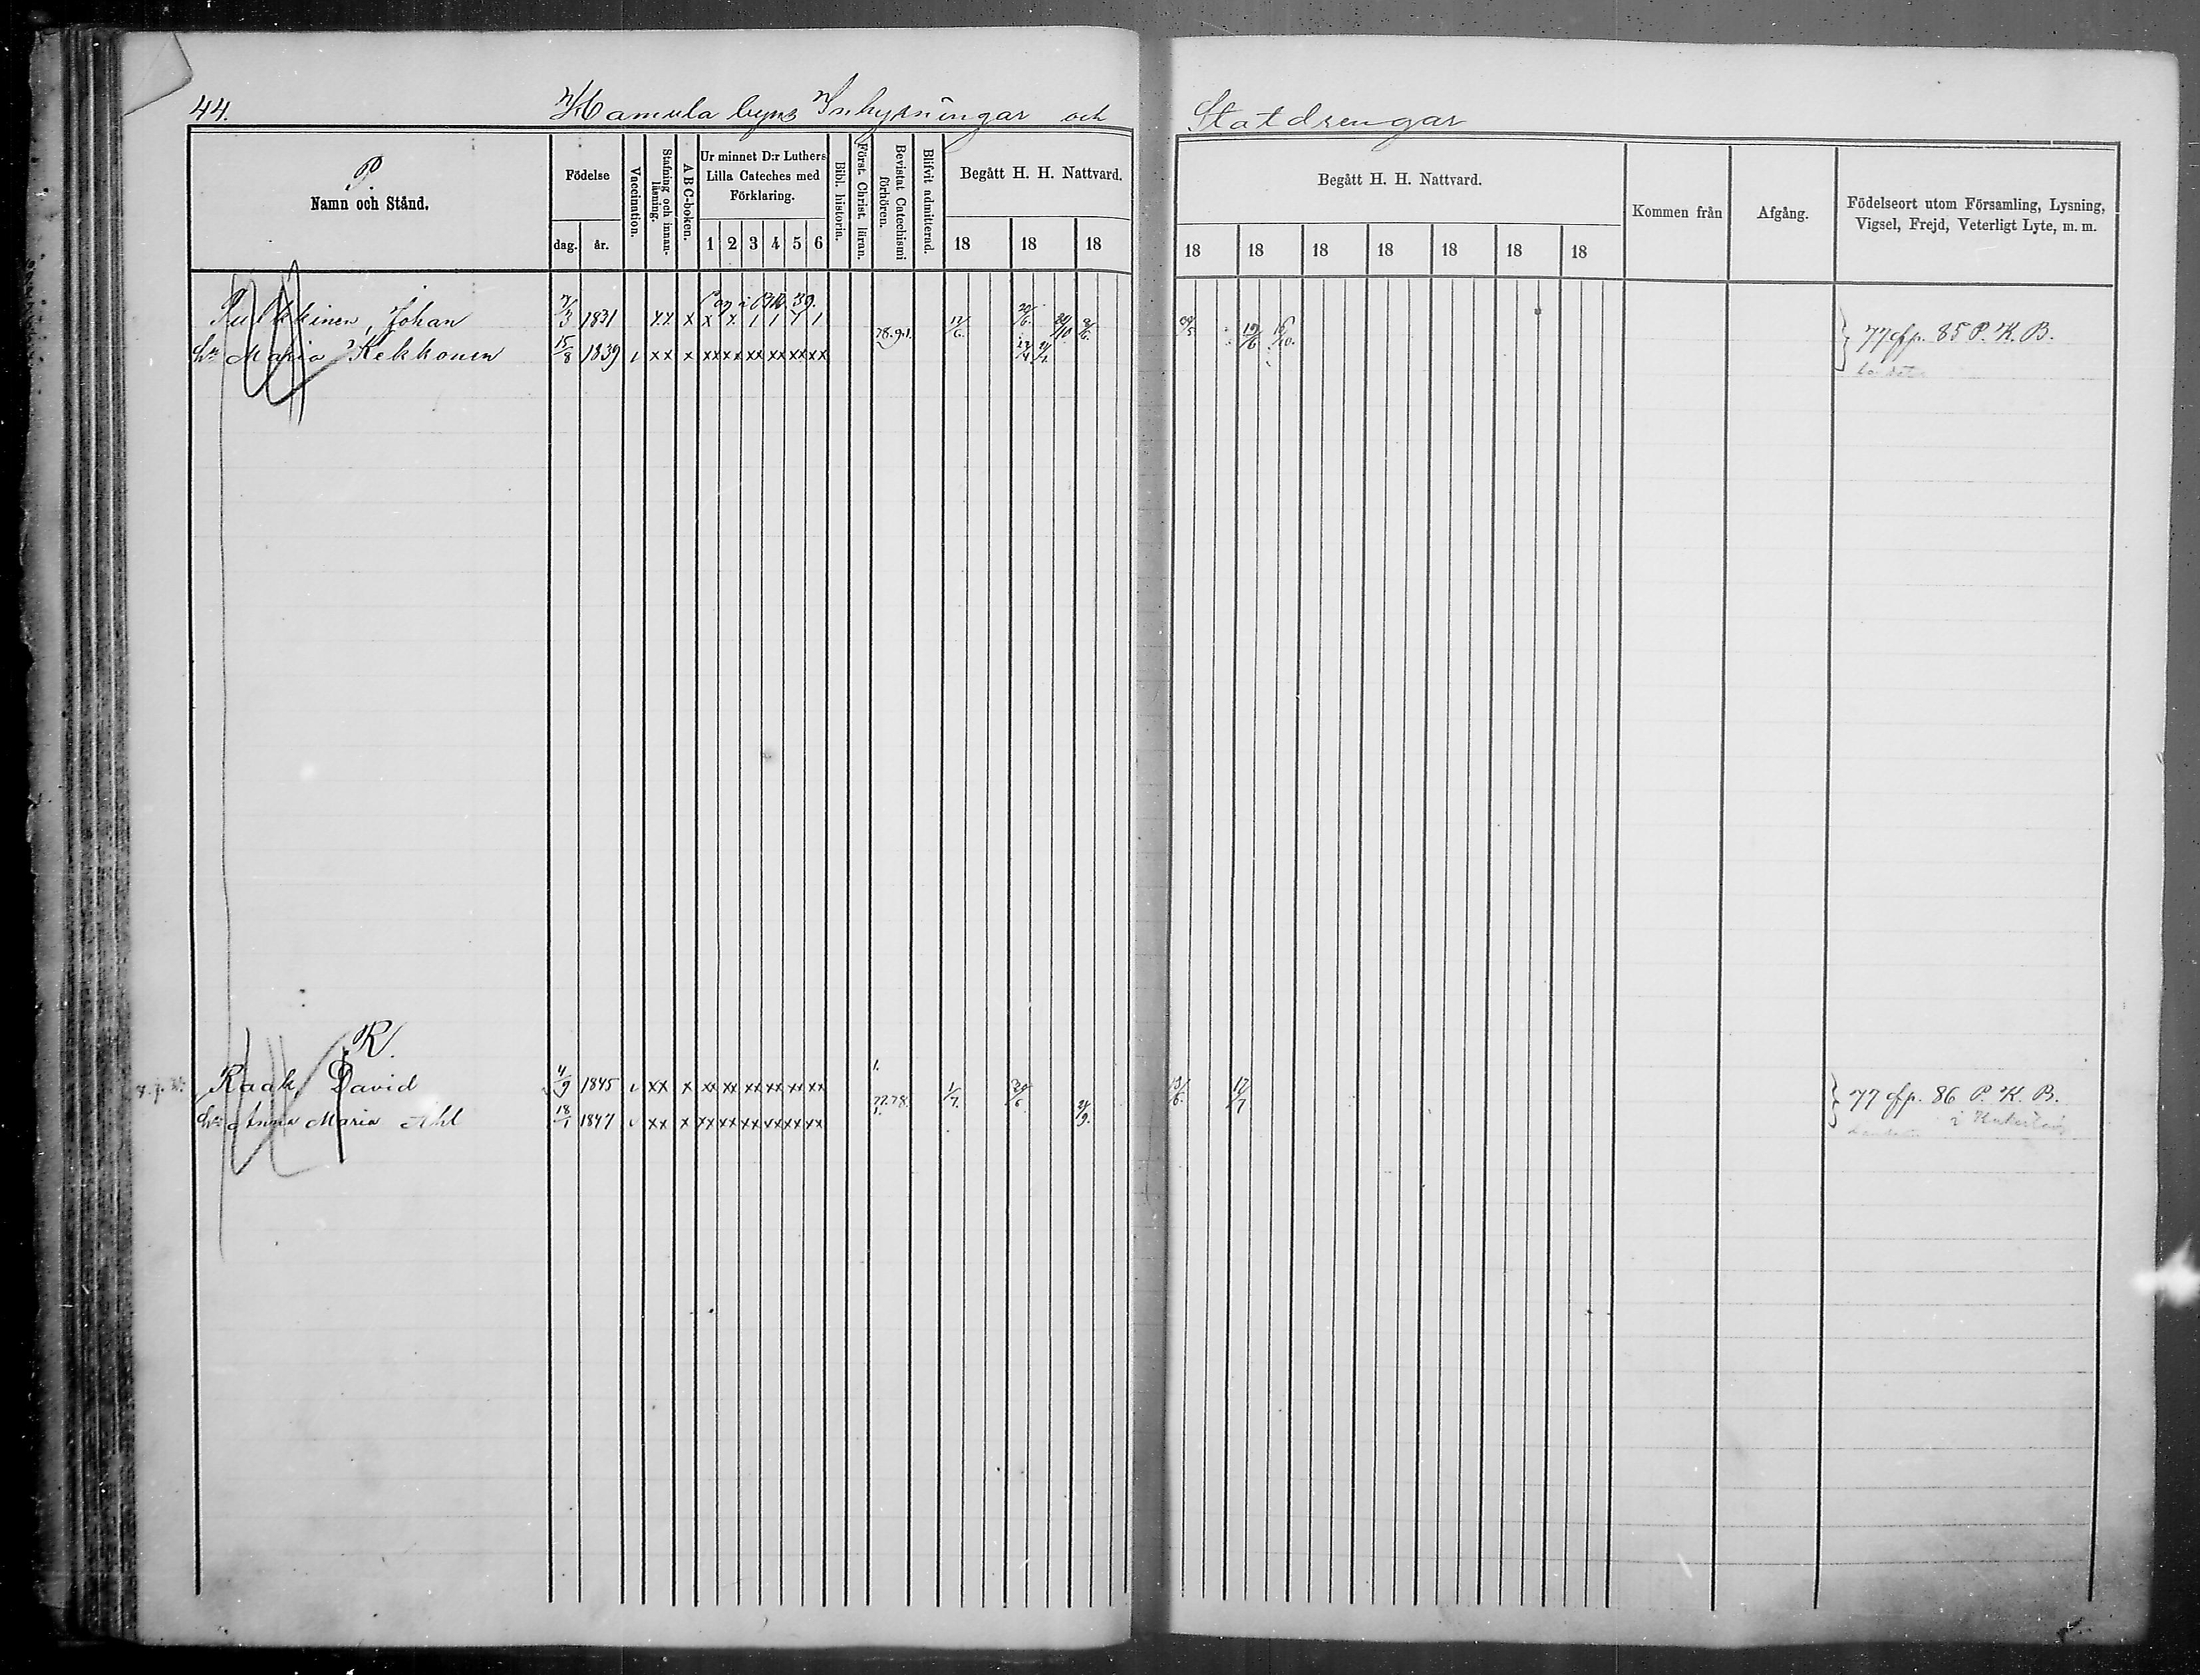 44. Hamula byns Inhysningar och Statdrengar
P
Namn och Stånd.
Födelse
dag. år.
Vaccination.
Stafning och innanläsning.
A B C-boken.
Ur minnet D:r Luthers Lilla Cateches med Förklaring.
1 2 3 4 5 6
Bibl. historia.
Först. Christ. läran.
Bevistat Catechismi förhören.
Blifvit admitterad.
Begått H. H. Nattvard.
18 18 18
Begått H. H. Nattvard.
18 18 18 18 18 18 18
Kommen från
Afgång.
Födelseort utom Församling, Lysning, Vigsel, Frejd, Veterligt Lyte, m. m.
Pulkkinen, Johan 1831 x x x x x 1 1 1 1 17/6 19/6
77 fp. 85 P. K. B.
Hu Maria Kekkonen 15/8 1839 xx x xx xx xx xx xx xx
R.
Raak, David 4/9 1845 xx x xx xx xx xx xx xx 1/7 17/7
77 fp. 86 P. K. B.
Hu Anna Maria Ahl 18/1 1847 xx x xx xx xx xx xx xx 77.78.